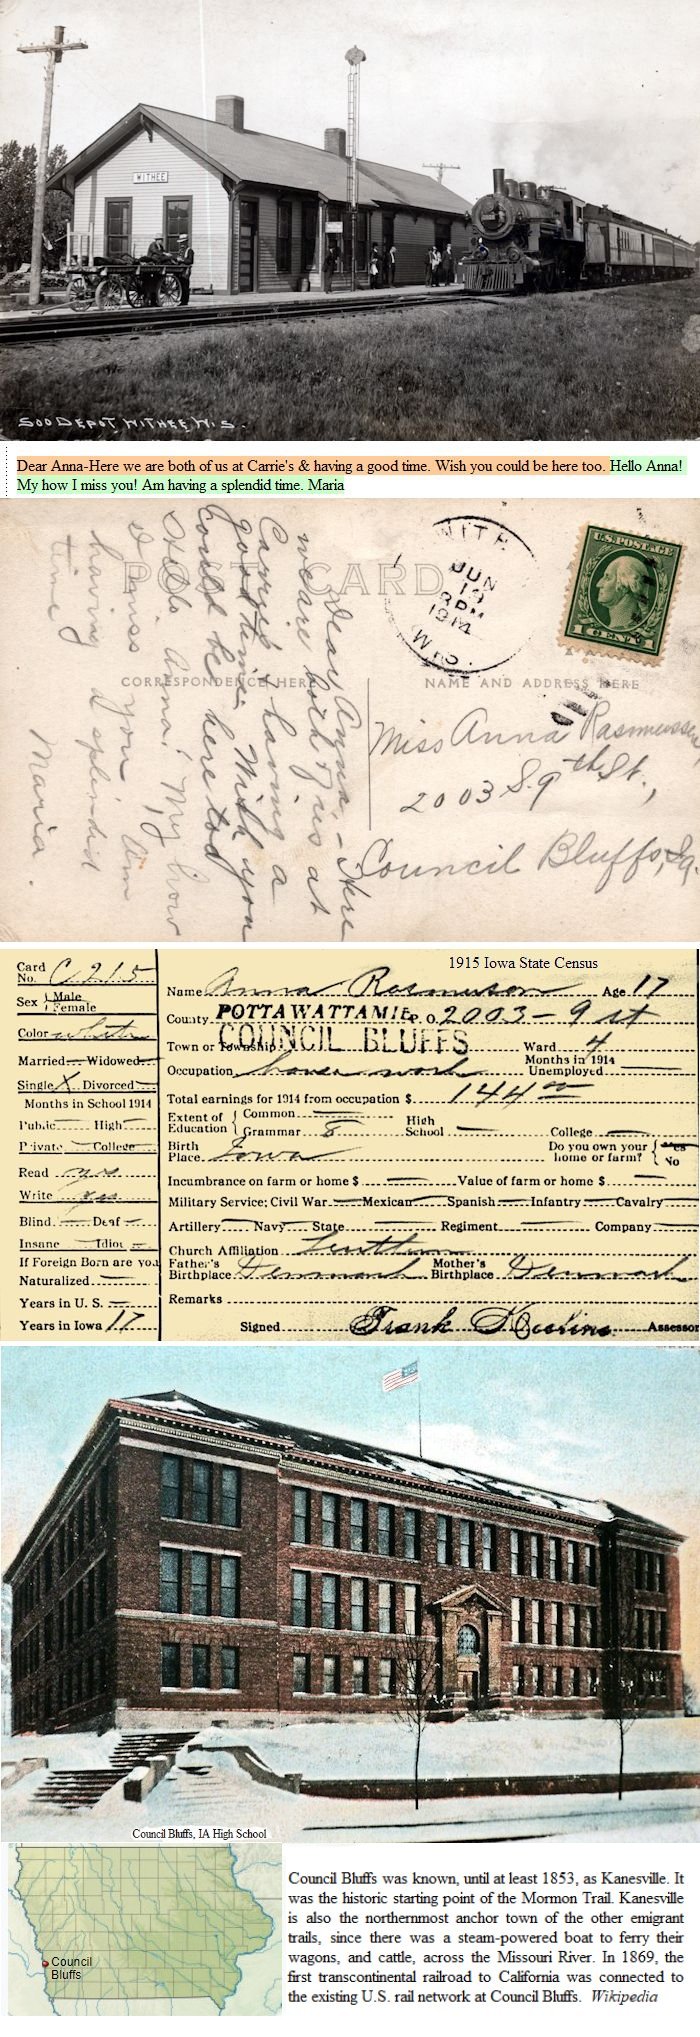 WITHEE
SOO DEPOT WITHEE WIS.
Dear Anna-Here we are both of us at Carrie's & having a good time. Wish you could be here too. Hello Anna!
My how I miss you! Am having a splendid time. Maria
POST CARD
CORRESPONDENCE HERE
NAME AND ADDRESS HERE
WITH
JUN
8PM
1914
WIS.
U.S. POSTAGE
1 CENT 1
Dear Anna, - Here
we are both of us at
Carrie's & having a
good time. Wish you
could be here too
Hello Anna! My how
I miss you! Am
having a splendid
time
Maria.
Miss Anna Rasmussen,
2003 S. 9th St.,
Council Bluffs, Ia.
1915 Iowa State Census
Card No. C 215
Sex Male Female
Color white
Married Widowed
Single X Divorced
Months in School 1914
Public High
Private College
Read yes
Write yes
Blind Deaf
Insane Idiot
If Foreign Born are you
Naturalized
Years in U. S.
Years in Iowa 17
Name Anna Rasmuson Age 17
County POTTAWATTAMIE P. O. 2003 - 9 st
Town or Township COUNCIL BLUFFS Ward 4
Occupation house work Months in 1914 Unemployed
Total earnings for 1914 from occupation $ 144 00
Extent of Education Common Grammar 8 High School College
Birth Place Iowa Do you own your home or farm? Yes No
Incumbrance on farm or home $ Value of farm or home $
Military Service: Civil War Mexican Spanish Infantry Cavalry
Artillery Navy State Regiment Company
Church Affiliation
Father's Birthplace Denmark Mother's Birthplace Denmark
Remarks
Signed Frank Assessor
Council Bluffs, IA High School
Council Bluffs
Council Bluffs was known, until at least 1853, as Kanesville. It
was the historic starting point of the Mormon Trail. Kanesville
is also the northernmost anchor town of the other emigrant
trails, since there was a steam-powered boat to ferry their
wagons, and cattle, across the Missouri River. In 1869, the
first transcontinental railroad to California was connected to
the existing U.S. rail network at Council Bluffs. Wikipedia